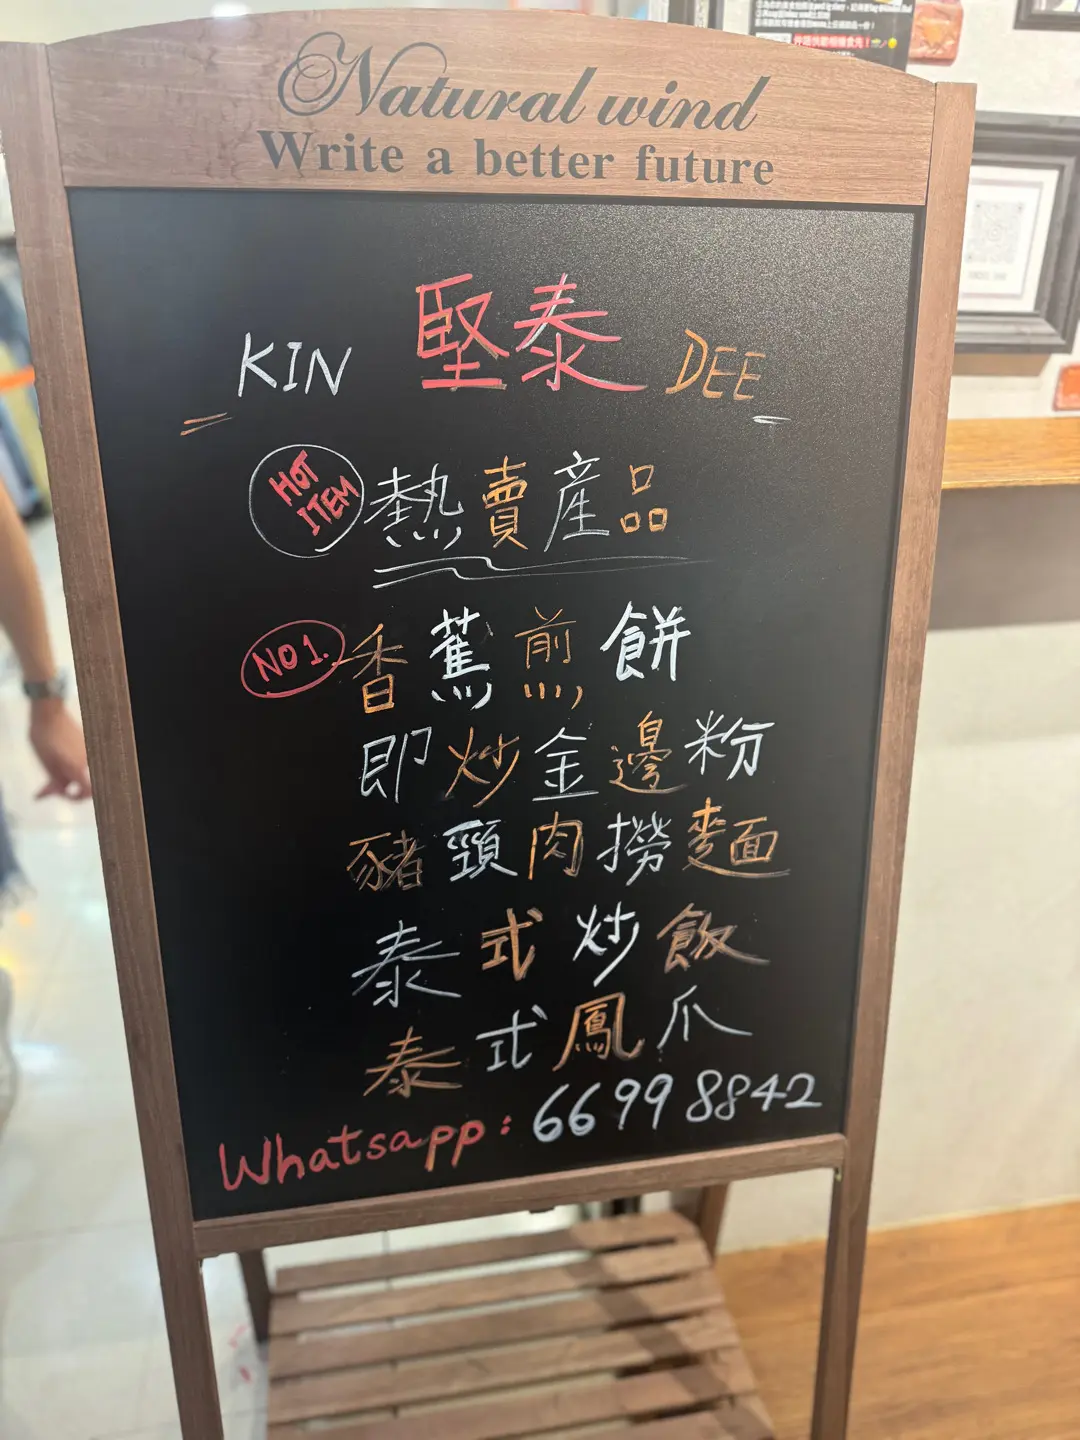 Natural wind
Write a better future
KIN 堅泰 DEE
HOT ITEM 熱賣產品
NO 1. 香蕉煎餅
即炒金邊粉
豬頸肉撈麵
泰式炒飯
泰式鳳爪
Whatsapp: 6699 8842